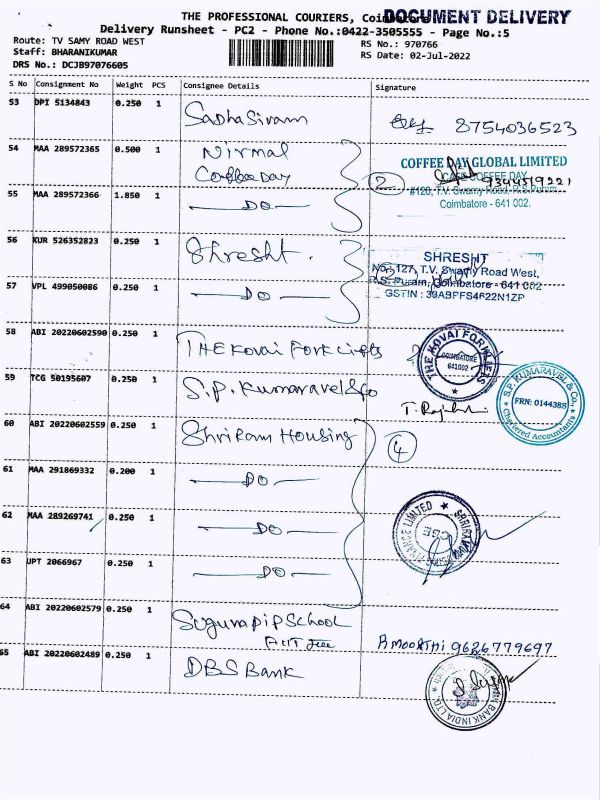 THE PROFESSIONAL COURIERS, Coimbatore
DOCUMENT DELIVERY
Delivery Runsheet - PC2 - Phone No.:0422-3505555 - Page No.:5
Route: TV SAMY ROAD WEST
RS No.: 970766
Staff: BHARANIKUMAR
RS Date: 02-Jul-2022
DRS No.: DCJB97076605
S No Consignment No Weight PCS Consignee Details Signature
53 DPI 5134843 0.250 1 Sadhasivam 8754036523
54 MAA 289572365 0.500 1 Nirmal
Coffee Day
2
COFFEE DAY GLOBAL LIMITED
COFFEE DAY
9344519221
#120, T.V. Swamy Road, R.S.Puram
Coimbatore - 641 002.
55 MAA 289572366 1.850 1 DO
56 KUR 526352823 0.250 1 Shresht.
SHRESHT
No. 127, T.V. Swamy Road West,
R.S. Puram, Coimbatore - 641 002
57 VPL 499050086 0.250 1 DO
58 ABI 20220602590 0.250 1 THE KOVAI FORK Lifts
THE KOVAI FORKLIFTS
COIMBATORE
641002
59 TCG 50195607 0.250 1 S.P. Kumaravel & Co
S.P. KUMARAVEL & CO.,
FRN: 014438S
Chartered Accountants
60 ABI 20220602559 0.250 1 Shriram Housing
4
61 MAA 291869332 0.200 1 DO
62 MAA 289269741 0.250 1 DO
63 UPT 2066967 0.250 1 DO
64 ABI 20220602579 0.250 1 School
9626779697
65 ABI 20220602489 0.250 1 DBS Bank
BANK INDIA LTD.